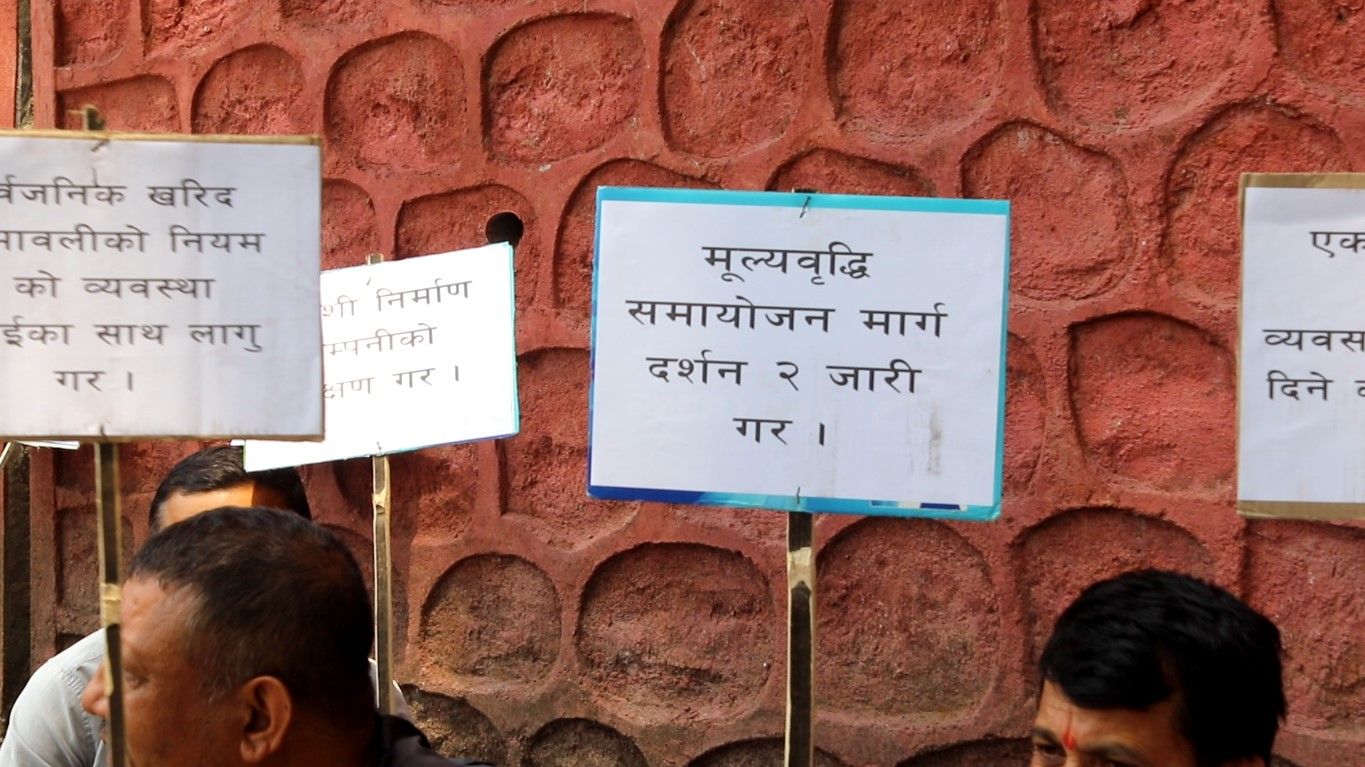 र्वजनिक खरिद
मावलीको नियम
को व्यवस्था
ईका साथ लागु
गर ।
शी निर्माण
म्पनीको
क्षण गर ।
मूल्यवृद्धि
समायोजन मार्ग
दर्शन २ जारी
गर ।
एक
व्यवस
दिने